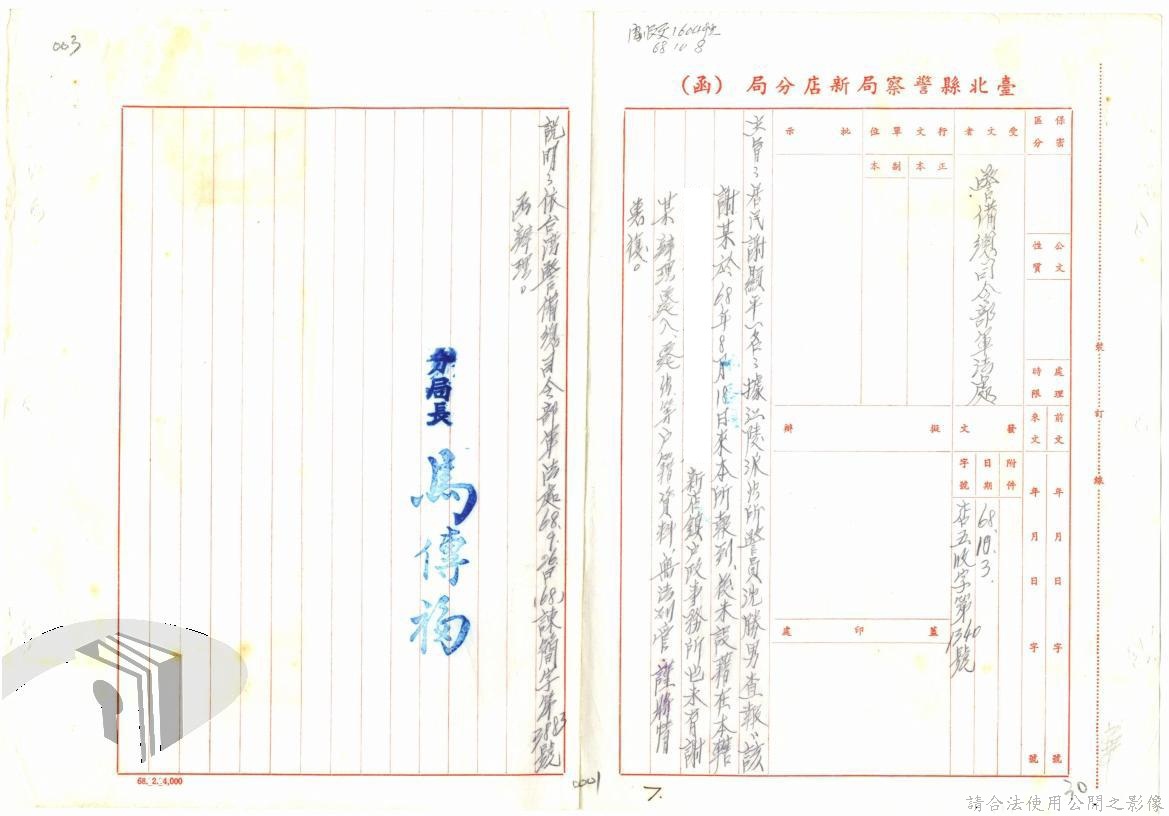 003
68 10 8
臺北縣警察局新店分局 (函)
保密區分
公文性質
處理時限
前文 年 月 日 字 號
來文 年 月 日 字 號
受文者
警備總司令部軍法處
行文單位
正本
副本
批示
發文
附件
日期
68.10.3.
字號
店五收字第1340號
擬辦
蓋印處
裝訂線
主旨:居民謝顯平一名:據江陵派出所警員沈勝男查報:該
謝某於68年8月18日來本所報到,後未設籍在本轄
新店鎮戶政事務所也未有謝
某辦理遷入、遷出等戶籍資料,無法列管,謹將情
表復。
說明:依台灣警備總司令部軍法處68.9.26日(68)諫簡字第3883號
函辦理。
分局長 馬傳福
68. 2. 4,000
0001
7.
30
請合法使用公開之影像